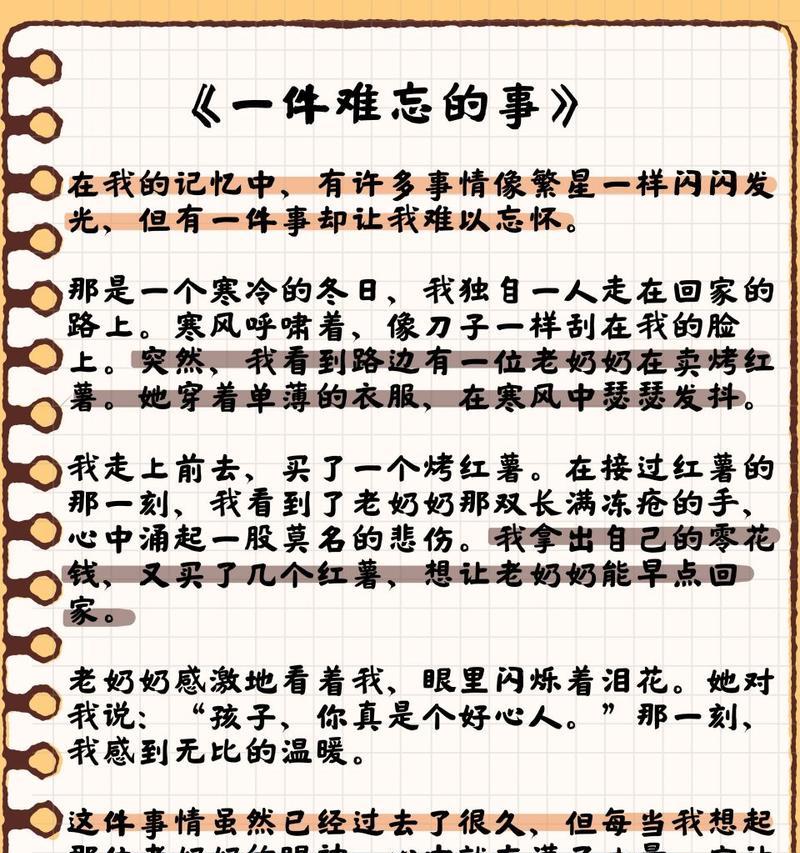 《一件难忘的事》
在我的记忆中，有许多事情像繁星一样闪闪发
光，但有一件事却让我难以忘怀。
那是一个寒冷的冬日，我独自一人走在回家的
路上。寒风呼啸着，像刀子一样刮在我的脸
上。突然，我看到路边有一位老奶奶在卖烤红
薯。她穿着单薄的衣服，在寒风中瑟瑟发抖。
我走上前去，买了一个烤红薯。在接过红薯的
那一刻，我看到了老奶奶那双长满冻疮的手，
心中涌起一股莫名的悲伤。我拿出自己的零花
钱，又买了几个红薯，想让老奶奶能早点回
家。
老奶奶感激地看着我，眼里闪烁着泪花。她对
我说：“孩子，你真是个好心人。”那一刻，
我感到无比的温暖。
这件事情虽然已经过去了很久，但每当我想起